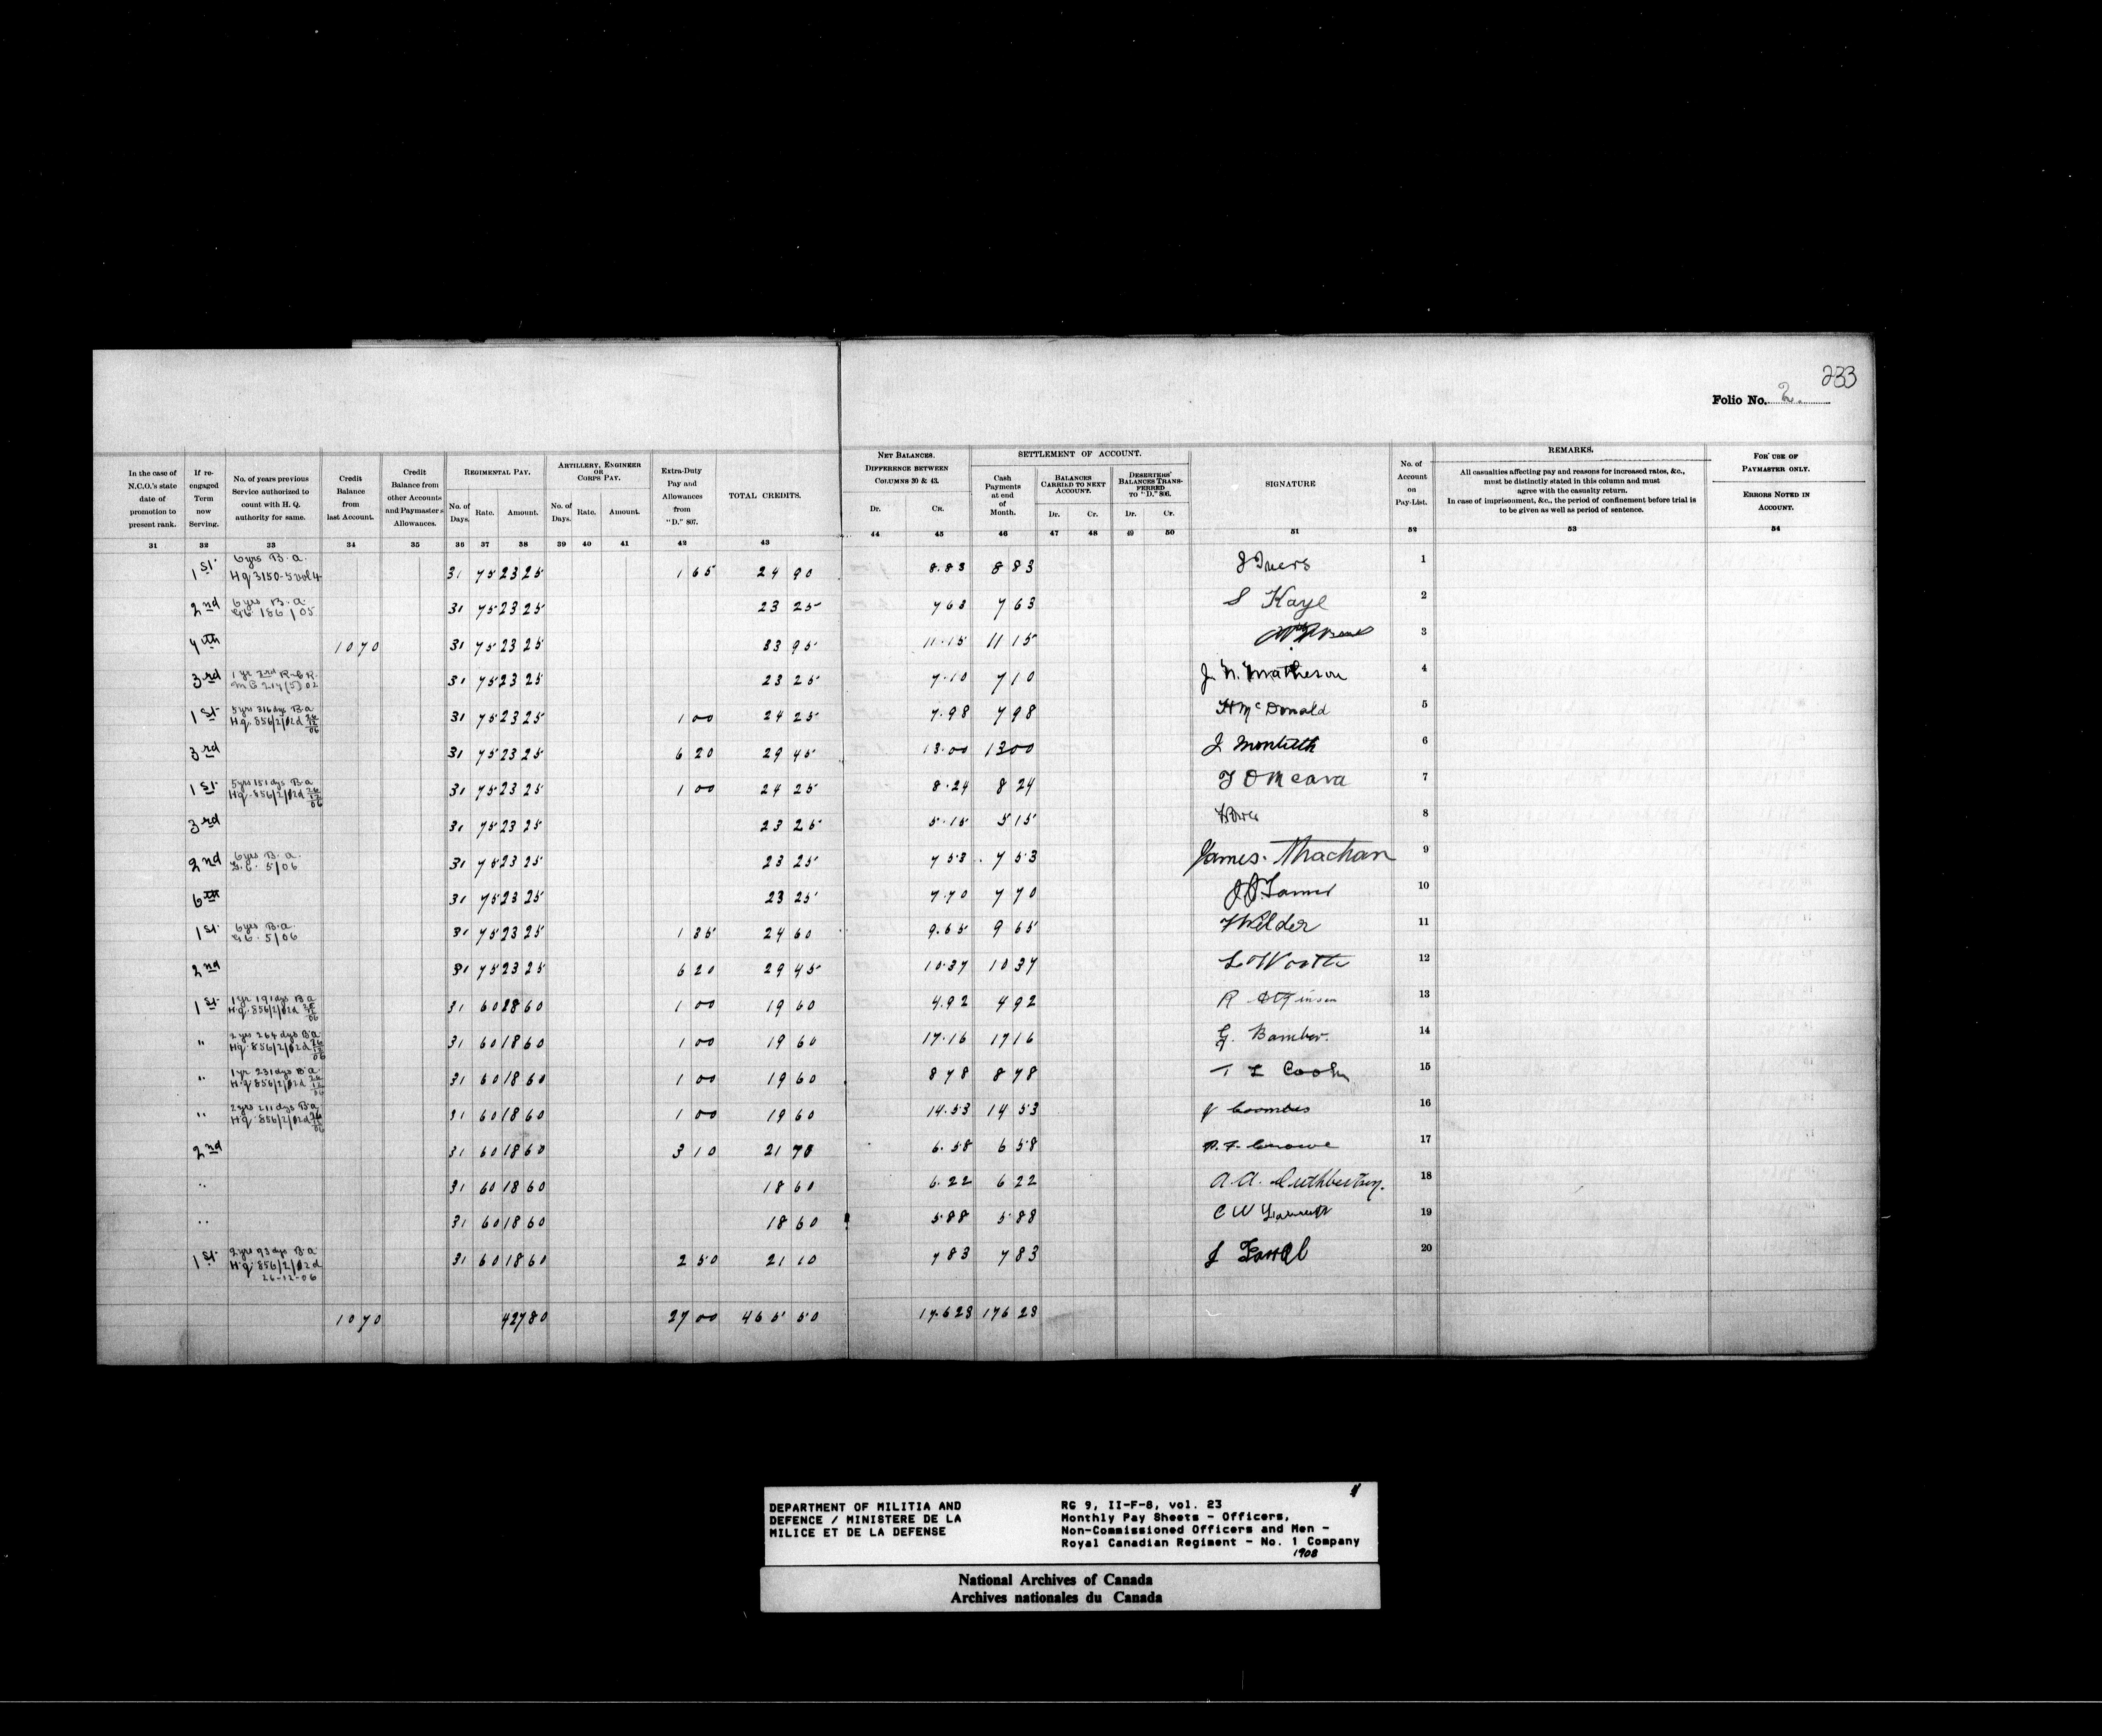 233
Folio No. 2.
In the case of N.C.O.'s state date of promotion to present rank.
If re-engaged Term now Serving.
No. of years previous Service authorized to count with H. Q. authority for same.
Credit Balance from last Account.
Credit Balance from other Accounts and Paymaster's Allowances.
REGIMENTAL PAY.
No. of Days. Rate. Amount.
ARTILLERY, ENGINEER OR CORPS PAY.
No. of Days. Rate. Amount.
Extra-Duty Pay and Allowances from "D." 807.
TOTAL CREDITS.
NET BALANCES. DIFFERENCE BETWEEN COLUMNS 30 & 43.
Dr. Cr.
SETTLEMENT OF ACCOUNT.
Cash Payments at end of Month.
BALANCES CARRIED TO NEXT ACCOUNT.
Dr. Cr.
DESERTERS' BALANCES TRANSFERRED TO "D." 806.
Dr. Cr.
SIGNATURE
No. of Account on Pay-List.
REMARKS.
All casualties affecting pay and reasons for increased rates, &c., must be distinctly stated in this column and must agree with the casualty return.
In case of imprisonment, &c., the period of confinement before trial is to be given as well as period of sentence.
FOR USE OF PAYMASTER ONLY.
ERRORS NOTED IN ACCOUNT.
31 32 33 34 35 36 37 38 39 40 41 42 43 44 45 46 47 48 49 50 51 52 53 54
1st 6 yrs B.a. Hq 3150-5 vol 4 31 75 23 25 1 65 24 90 8.83 8 83 1
2nd 6 yrs B.a. 186/05 31 75 23 25 23 25 7 63 7 63 S Kaye 2
4th 10 70 31 75 23 25 33 95 11.15 11 15 3
3rd 1 yr 31 75 23 25 23 25 7.10 7 10 J. N. Matheson 4
1st 5 yrs 316 dys B.a Hq. 856/2/02d 26/12/06 31 75 23 25 1 00 24 25 7.98 7 98 H McDonald 5
3rd 31 75 23 25 6 20 29 45 13.00 13 00 J Montieth 6
1st 5 yrs 151 dys B.a Hq. 856/2/02d 26/12/06 31 75 23 25 1 00 24 25 8.24 8 24 T O Meara 7
3rd 31 75 23 25 23 25 5.15 5 15 8
2nd 6 yrs B.a. 5/06 31 75 23 25 23 25 7 53 7 53 James. Strachan 9
6th 31 75 23 25 23 25 7.70 7 70 10
1st 6 yrs B.a. 5/06 31 75 23 25 1 35 24 60 9.65 9 65 F Wilder 11
2nd 31 75 23 25 6 20 29 45 10.37 10 37 L Worth 12
1st 1 yr 191 dys B a H.q. 856/2/02d 26/12/06 31 60 18 60 1 00 19 60 4.92 4 92 13
" 2 yrs 264 dys B a Hq. 856/2/02d 26/12/06 31 60 18 60 1 00 19 60 17.16 17 16 G. Bamber. 14
" 1 yr 231 dys B.a. H.q 856/2/02d 26/12/06 31 60 18 60 1 00 19 60 8 78 8 78 T L Cook 15
" 2 yrs 211 dys B.a H q. 856/2/02d 26/12/06 31 60 18 60 1 00 19 60 14.53 14 53 J Coombes 16
2nd 31 60 18 60 3 10 21 70 6.58 6 58 Crowe 17
" 31 60 18 60 18 60 6.22 6 22 A. A. Cuthbertson. 18
" 31 60 18 60 18 60 5 88 5 88 C W 19
1st 2 yrs 93 dys B a H.q. 856/2/02d 26-12-06 31 60 18 60 2 50 21 10 7 83 7 83 J Farrell 20
10 70 427 80 27 00 465 50 176 23 176 23
DEPARTMENT OF MILITIA AND
DEFENCE / MINISTERE DE LA
MILICE ET DE LA DEFENSE
RG 9, II-F-8, vol. 23
Monthly Pay Sheets - Officers,
Non-Commissioned Officers and Men -
Royal Canadian Regiment - No. 1 Company
1908
National Archives of Canada
Archives nationales du Canada